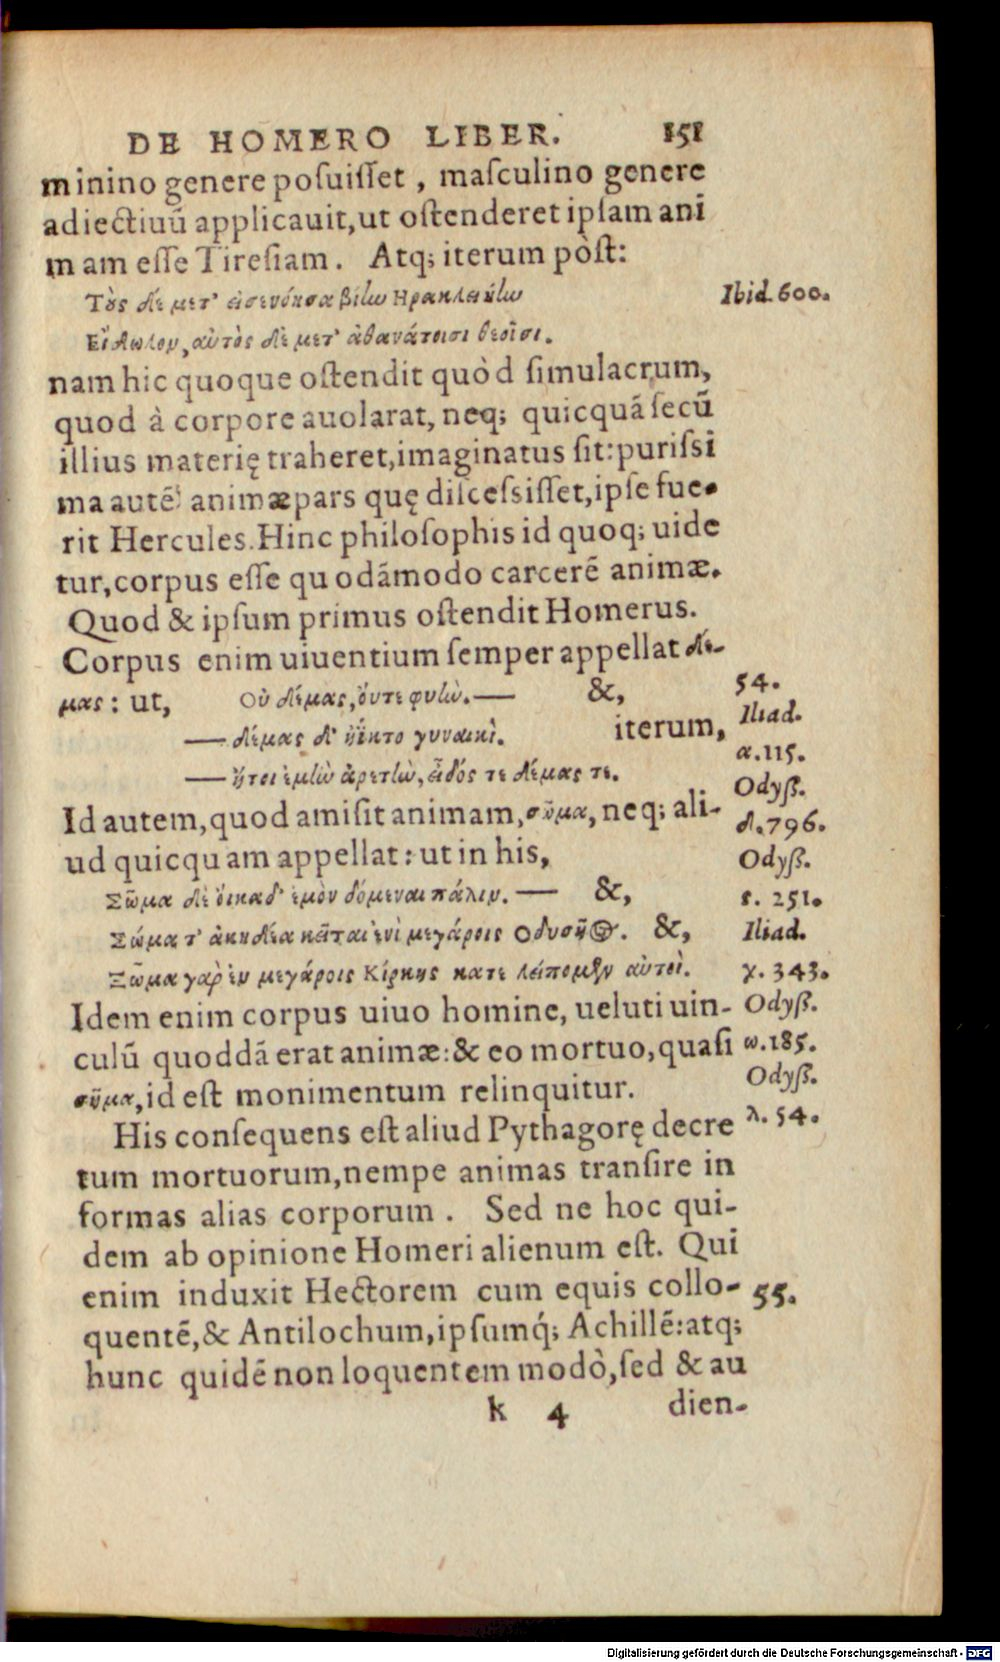 DE HOMERO LIBER. 151
minino genere posuisset, masculino genere
adiectiuū applicauit, ut ostenderet ipsam ani
mam esse Tiresiam. Atq; iterum pòst:
Τὸς δέ μετ' εἰσενόησα βίlω Ηρακλείηlω Ibid. 600.
Εἴδωλον, αὐτὸς δὲ μετ' ἀθανάτοισι θεοῖσι.
nam hic quoque ostendit quòd simulacrum,
quod à corpore auolarat, neq; quicquā secū
illius materię traheret, imaginatus sit: purissi
ma autē animæ pars quę discessisset, ipse fue-
rit Hercules. Hinc philosophis id quoq; uide
tur, corpus esse quodāmodo carcerē animæ.
Quod & ipsum primus ostendit Homerus.
Corpus enim uiuentium semper appellat δέ-
μας: ut, Οὐ δέμας, ὄυτε φυlὼ.— &, 54.
— δέμας δ' ἤϊκτο γυναικὶ. iterum, Iliad.
α. 115.
— ἤτοι ἐμlὼ ἀρετlὼ, εἶδός τε δέμας τε. Odyß.
Id autem, quod amisit animam, σῶμα, neq; ali- δ. 796.
ud quicquam appellat: ut in his, Odyß.
Σῶμα δὲ ὄικαδ' ἐμὸν δόμεναι πάλιν. — &, ς. 251.
Σώμα τ' ἀκηδέα κεῖται ἐνὶ μεγάροις Οδυσῆος. &, Iliad.
Σῶμα γαρ ἐν μεγάροις Κίρκης κατελείπομεν αὐτοὶ. χ. 343.
Idem enim corpus uiuo homine, ueluti uin- Odyß.
culū quoddā erat animæ: & eo mortuo, quasi ω. 185.
σῆμα, id est monimentum relinquitur. Odyß.
His consequens est aliud Pythagorę decre λ. 54.
tum mortuorum, nempe animas transire in
formas alias corporum. Sed ne hoc qui-
dem ab opinione Homeri alienum est. Qui
enim induxit Hectorem cum equis collo- 55.
quentē, & Antilochum, ipsumq́; Achillē: atq;
hunc quidē non loquentem modò, sed & au
k 4 dien-
Digitalisierung gefördert durch die Deutsche Forschungsgemeinschaft - DFG